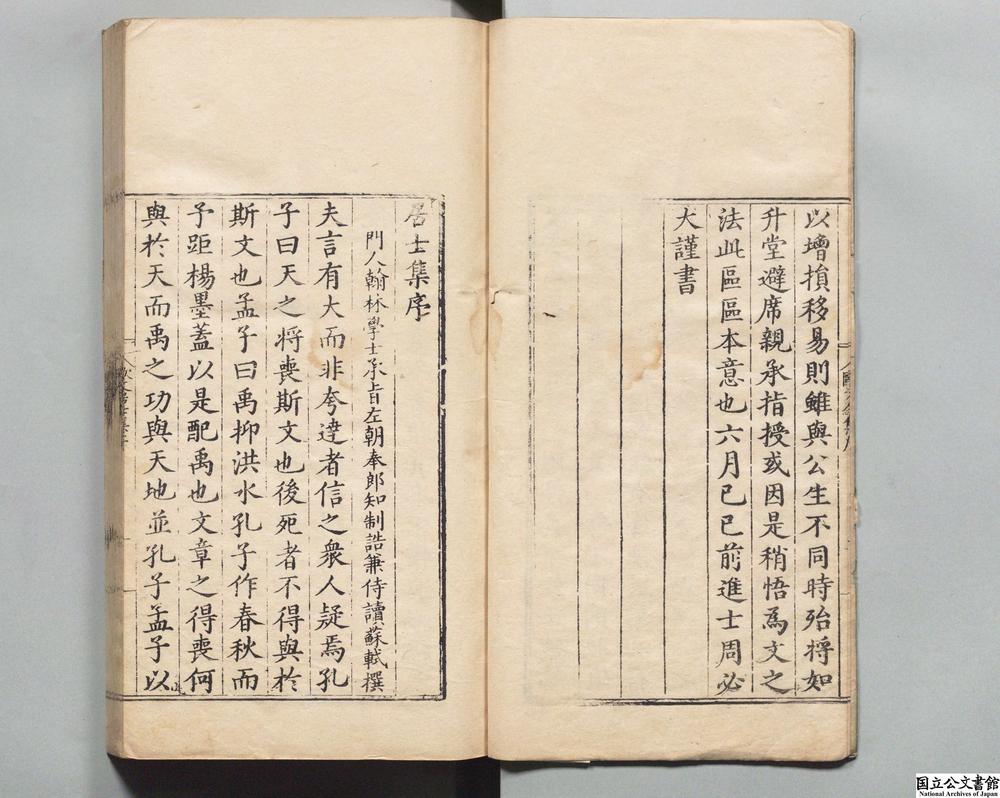 以增損移易則雖與公生不同時殆將如
升堂避席親承指授或因是稍悟為文之
法此區區本意也六月己巳前進士周必
大謹書
居士集序
門人翰林學士承旨左朝奉郎知制誥兼侍讀蘇軾撰
夫言有大而非夸達者信之衆人疑焉孔
子曰天之将喪斯文也後死者不得與於
斯文也孟子曰禹抑洪水孔子作春秋而
予距楊墨蓋以是配禹也文章之得喪何
與於天而禹之功與天地並孔子孟子以
国立公文書館
National Archives of Japan